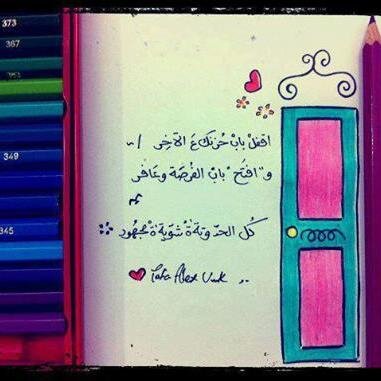 373
367
349
345
اقفل باب حزنك ع الآخر
و" افتح " باب الفرصة وعافر
كل الحدوتة شوية مجهود